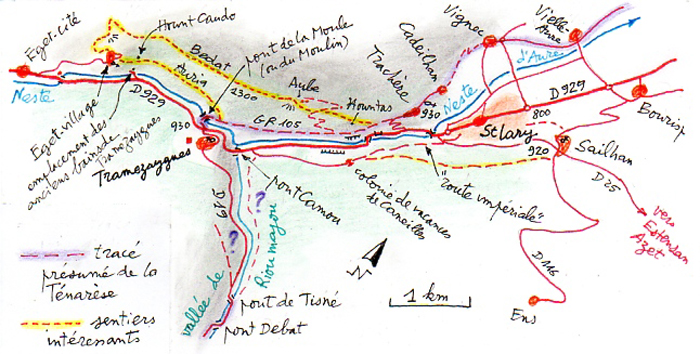 Eget-cité
Hount Caudo
Bedat
Auria
pont de la Moule
(ou du Moulin)
Vignec
Vielle-
Aure
Cadeilhan
Trachère
Neste
d'Aure
Neste
D929
Eget-village
emplacement des
anciens bains de
Tramezaygues
930
1300
Aube
Hountas
GR 105
930
D 929
800
Bourisp
St Lary
Tramezaygues
920
Sailhan
pont Camou
colonie de vacances
de Caneilles
"route impériale"
D 25
vers
Estensan
Azet
D19
?
?
Rioumajou
vallée de
D116
Ens
tracé
présumé de la
Ténarèse
sentiers
intéressants
pont de Tisné
pont Debat
N
1 km